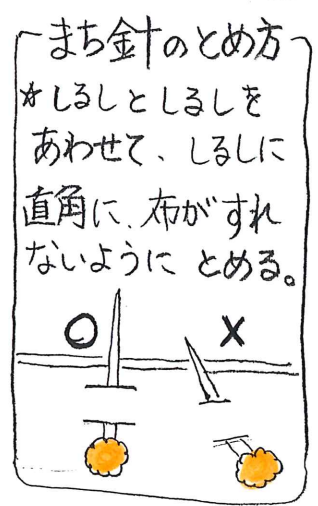 まち針のとめ方
☆しるしとしるしを
あわせて、しるしに
直角に、布がずれ
ないように とめる。
○ ×